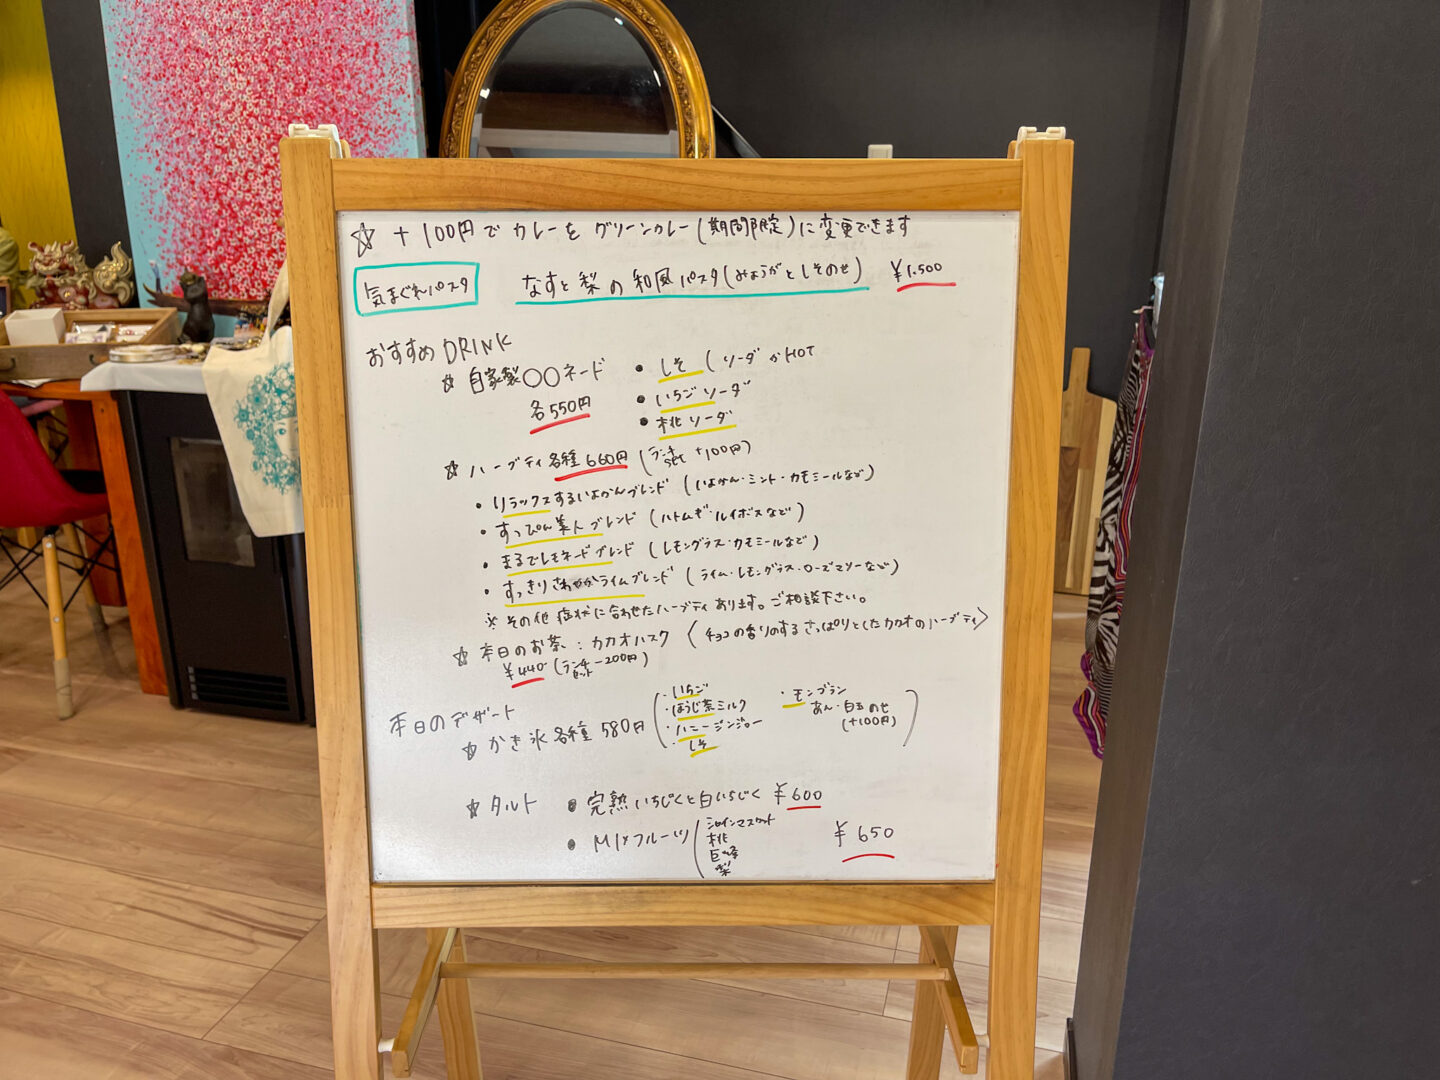 ☆ +100円でカレーをグリーンカレー(期間限定)に変更できます
気まぐれパスタ なすと梨の和風パスタ(みょうがとしそのせ) ¥1.500
おすすめDRINK
☆ 自家製○○ネード
各550円
• しそ (ソーダかHOT
• いちごソーダ
• 桃ソーダ
☆ ハーブティ各種660円 (ランチset +100円)
• リラックスするいよかんブレンド (いよかん・ミント・カモミールなど)
• すっぴん美人ブレンド (ハトムギ・ルイボスなど)
• まるでレモネードブレンド (レモングラス・カモミールなど)
• すっきりさわやかライムブレンド (ライム・レモングラス・ローズマリーなど)
※ その他 症状に合わせたハーブティあります。ご相談下さい。
☆ 本日のお茶:カカオハスク 〈チョコの香りのするさっぱりとしたカカオのハーブティ〉
¥440 (ランチセット -200円)
本日のデザート
☆ かき氷各種 580円
・いちご
・ほうじ茶ミルク
・ハニージンジャー
・しそ
・モンブラン
あん・白玉のせ
(+100円)
☆ タルト • 完熟いちじくと白いちじく ¥600
• MIXフルーツ ¥650
シャインマスカット
桃
巨峰
梨